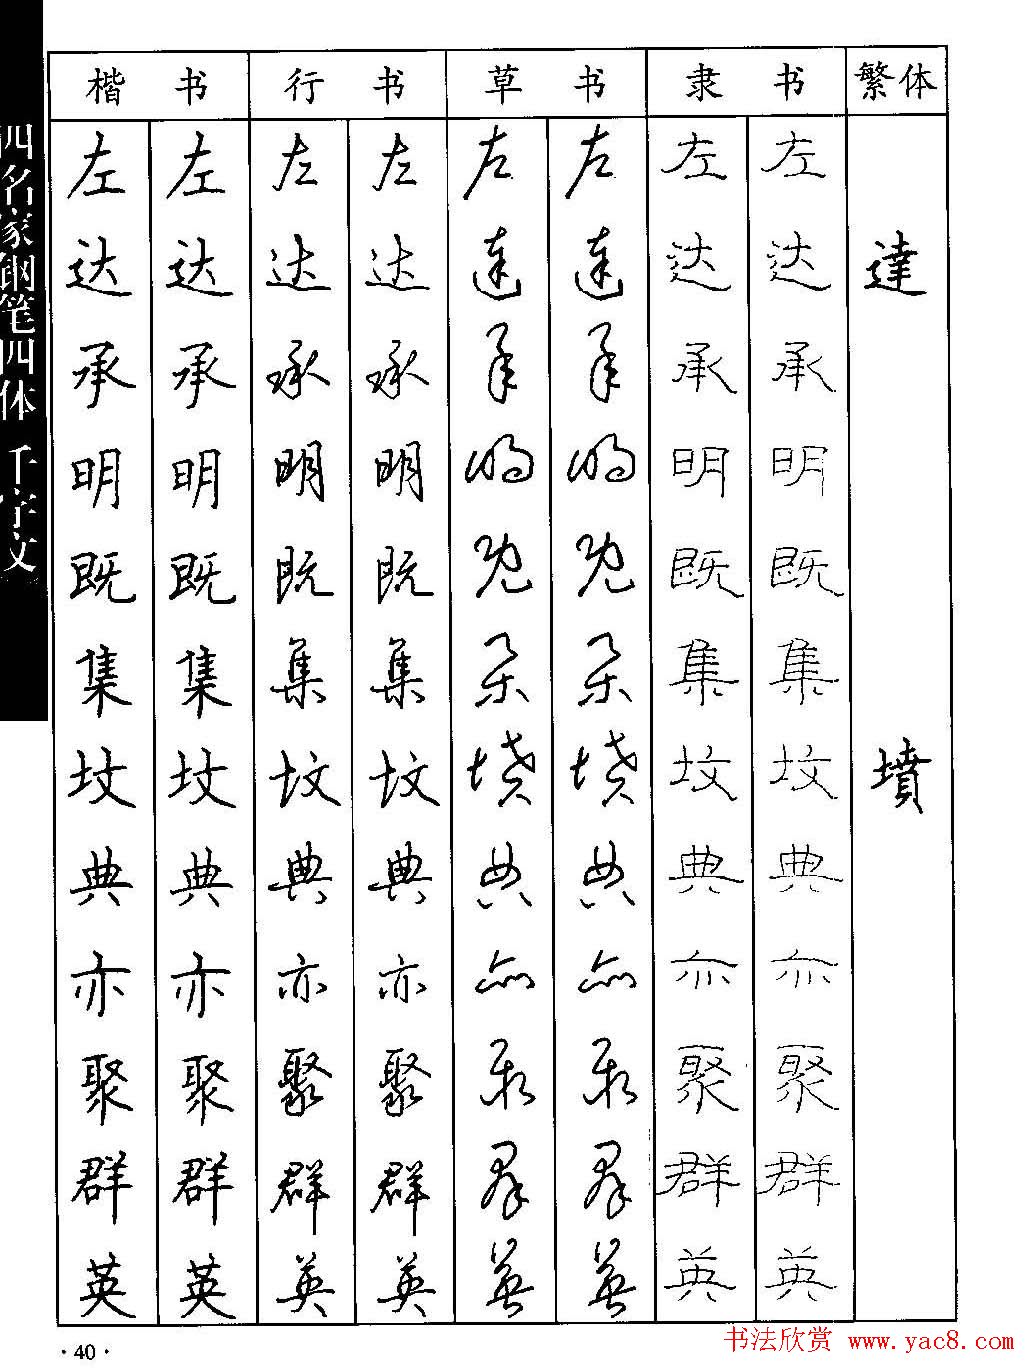 四名家钢笔四体 千字文
楷书 行书 草书 隶书 繁体
左 左 左 左 左 左 左 左
达 达 达 达 达 达 达 达 達
承 承 承 承 承 承 承 承
明 明 明 明 明 明 明 明
既 既 既 既 既 既 既 既
集 集 集 集 集 集 集 集
坟 坟 坟 坟 墳 墳 坟 坟 墳
典 典 典 典 典 典 典 典
亦 亦 亦 亦 亦 亦 亦 亦
聚 聚 聚 聚 聚 聚 聚 聚
群 群 群 群 群 群 群 群
英 英 英 英 英 英 英 英
·40·
书法欣赏 www.yac8.com